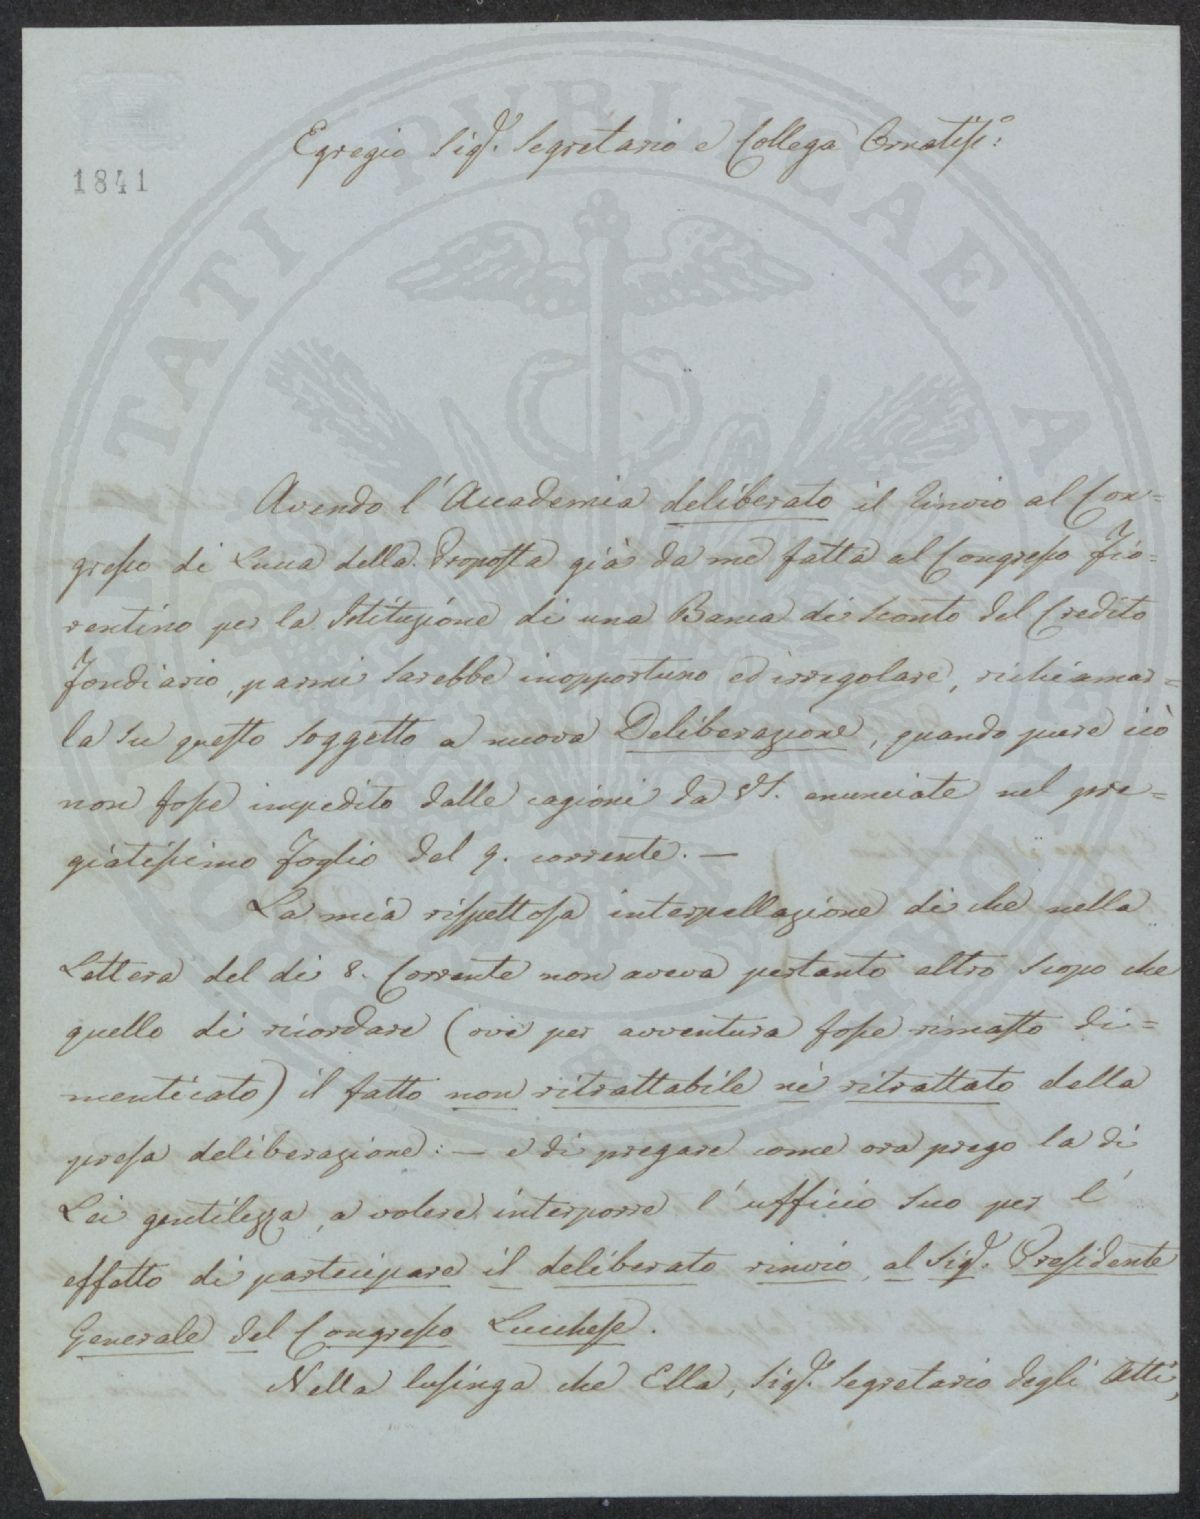 1841
Egregio Sigr. Segretario e Collega Ornatiss.o:
Avendo l'Accademia deliberato il rinvio al Con=
gresso di Lucca della Proposta già da me fatta al Congresso Fio=
rentino per la Istituzione di una Banca di Sconto del Credito
Fondiario, parmi sarebbe inopportuno ed irregolare, richiamar=
la su questo soggetto a nuova Deliberazione, quando pure ciò
non fosse impedito dalle cagioni da enunciate nel pre=
giatissimo Foglio del 9. corrente. —
La mia rispettosa interpellazione di che nella
Lettera del di 8. Corrente non aveva pertanto altro scopo che
quello di ricordare (ove per avventura fosse rimasto di=
menticato) il fatto non ritrattabile nè ritrattato della
presa deliberazione: — e di pregare come ora prego la di
Lei gentilezza, a volere interporre l'ufficio suo per l'
effetto di partecipare il deliberato rinvio al Sigr. Presidente
Generale del Congresso Lucchese.
Nella lusinga che Ella, Sigr. Segretario degli Atti,
SOCIETATI PUBLICAE